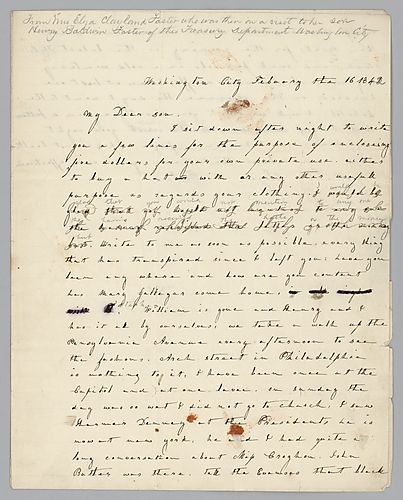 From Mrs Eliza Clayland Foster who was then on a visit to her son
Henry Baldwin Foster of the Treasury Department Washington City
Washington City February the 16 1842
My Dear son.
I sit down after night to write
you a few lines for the purpose of enclosing
five dollars for your own private use either
to buy a hat with or any other useful
purpose as regards your clothing. I would
Write to me as soon as possible every thing
that has transpired since I left you; have you
been any where and how are you content
has Mary come home;
William is gone and Henry and I
have it all by ourselves, we take a walk up the
Pensylvania Avenue every afternoon to see
the fashons. Arch street in Philadelphia
is nothing to it, I have been once at the
Capitol and at one levee. on sunday the
day was so wet I did not go to church, I saw
Harmer Denney at the Presidents he is
now at new york, he and I had quite a
long conversation about Skip Croghon. John
Butler was there. tell the Evanses that black